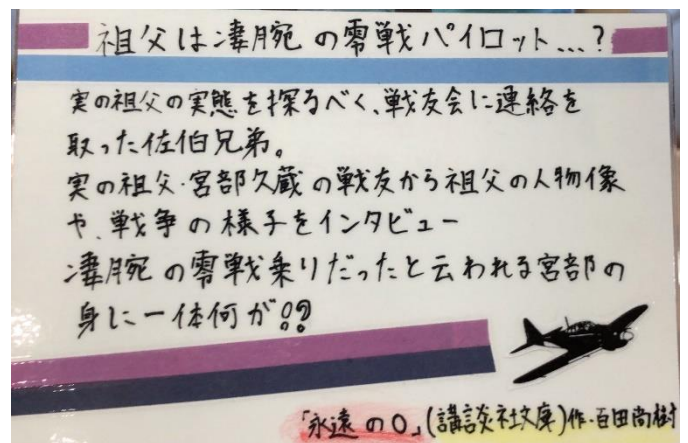 祖父は凄腕の零戦パイロット...?
実の祖父の実態を探るべく、戦友会に連絡を
取った佐伯兄弟。
実の祖父・宮部久蔵の戦友から祖父の人物像
や、戦争の様子をインタビュー
凄腕の零戦乗りだったと云われる宮部の
身に一体何が!?
「永遠の0」(講談社文庫)作・百田尚樹